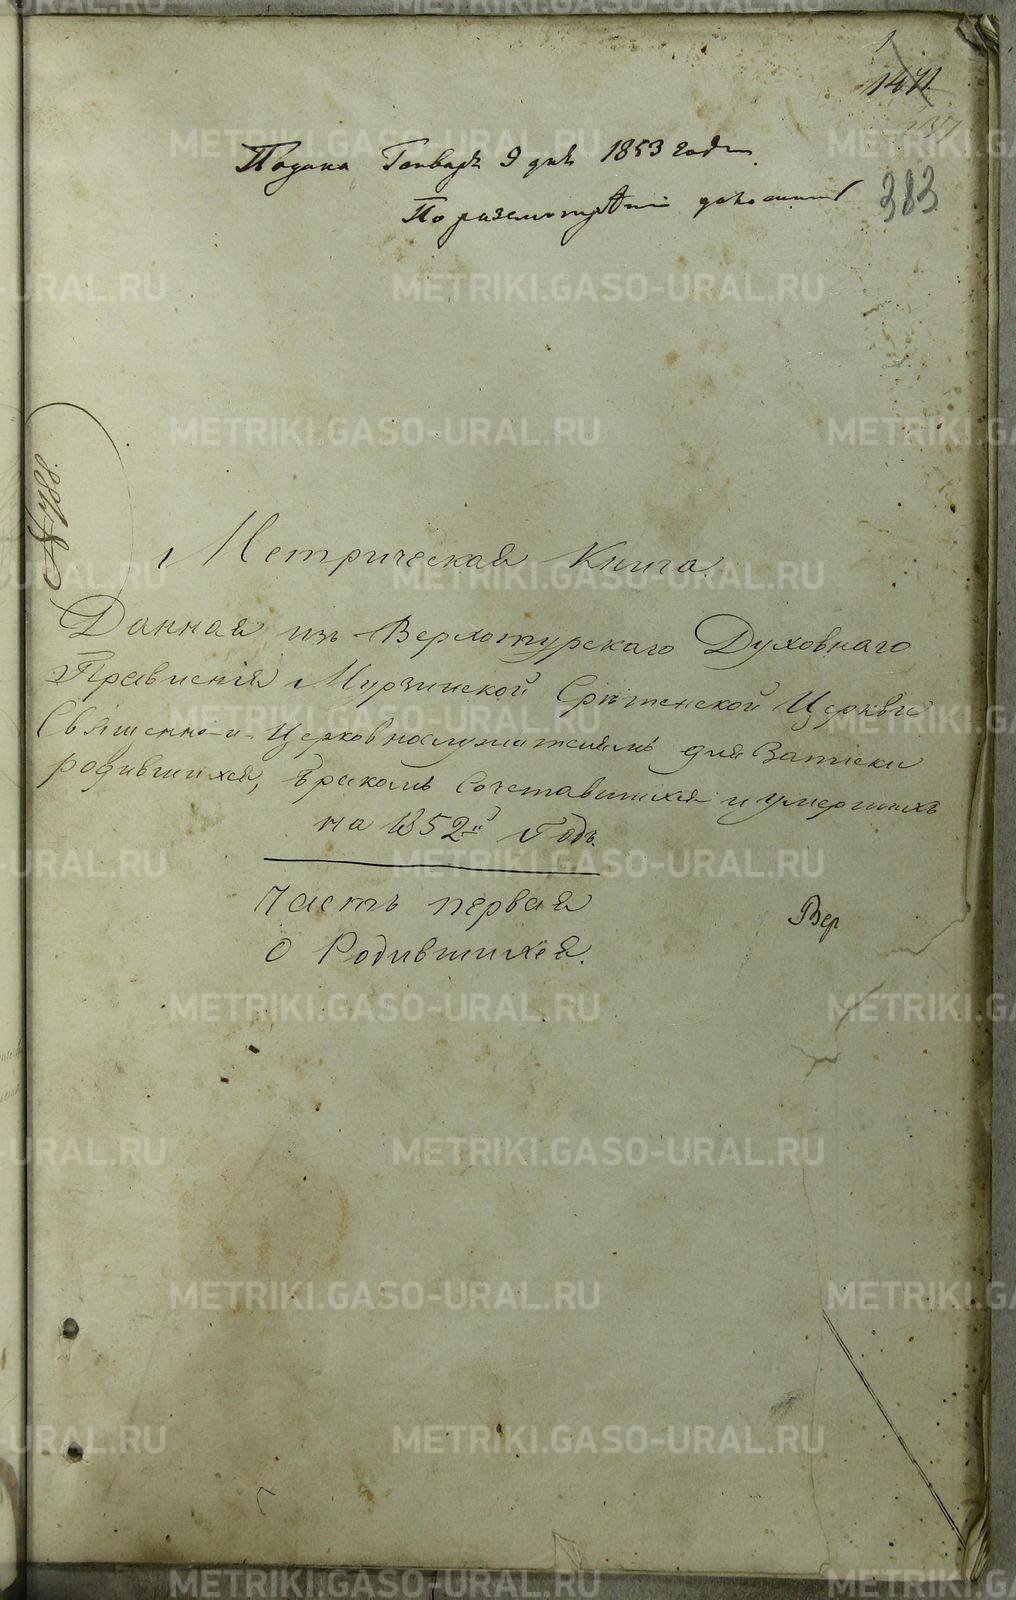 1
1471
137
383
Подана Генваря 9 дня 1853 года
По разсмотренiи
№ 788.
Метрическая Книга
Данная изъ Верхотурскаго Духовнаго
Правленiя Мурзинской Срѣтенской Церкви
Священно-и-Церковнослужителямъ для Записки
родившихся, бракомъ Сочетавшихся и умершихъ
на 1852й Годъ.
Часть первая
О Родившихся.
Вер
METRIKI.GASO-URAL.RU